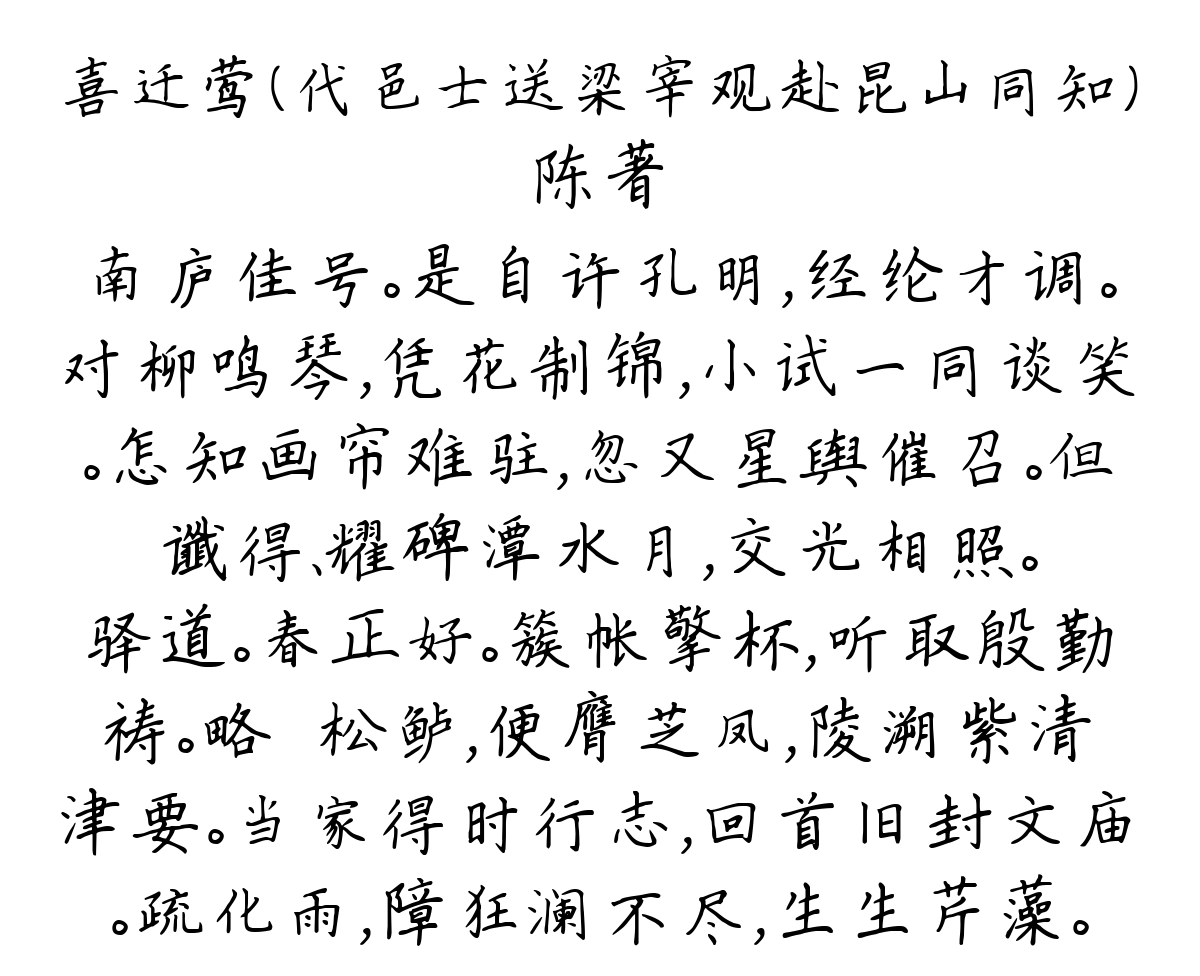 喜迁莺(代邑士送梁宰观赴昆山同知)
陈著
南庐佳号。是自许孔明,经纶才调。
对柳鸣琴,凭花制锦,小试一同谈笑
。怎知画帘难驻,忽又星舆催召。但
谶得、耀碑潭水月,交光相照。
驿道。春正好。簇帐擎杯,听取殷勤
祷。略 松鲈,便膺芝凤,陵溯紫清
津要。当家得时行志,回首旧封文庙
。疏化雨,障狂澜不尽,生生芹藻。